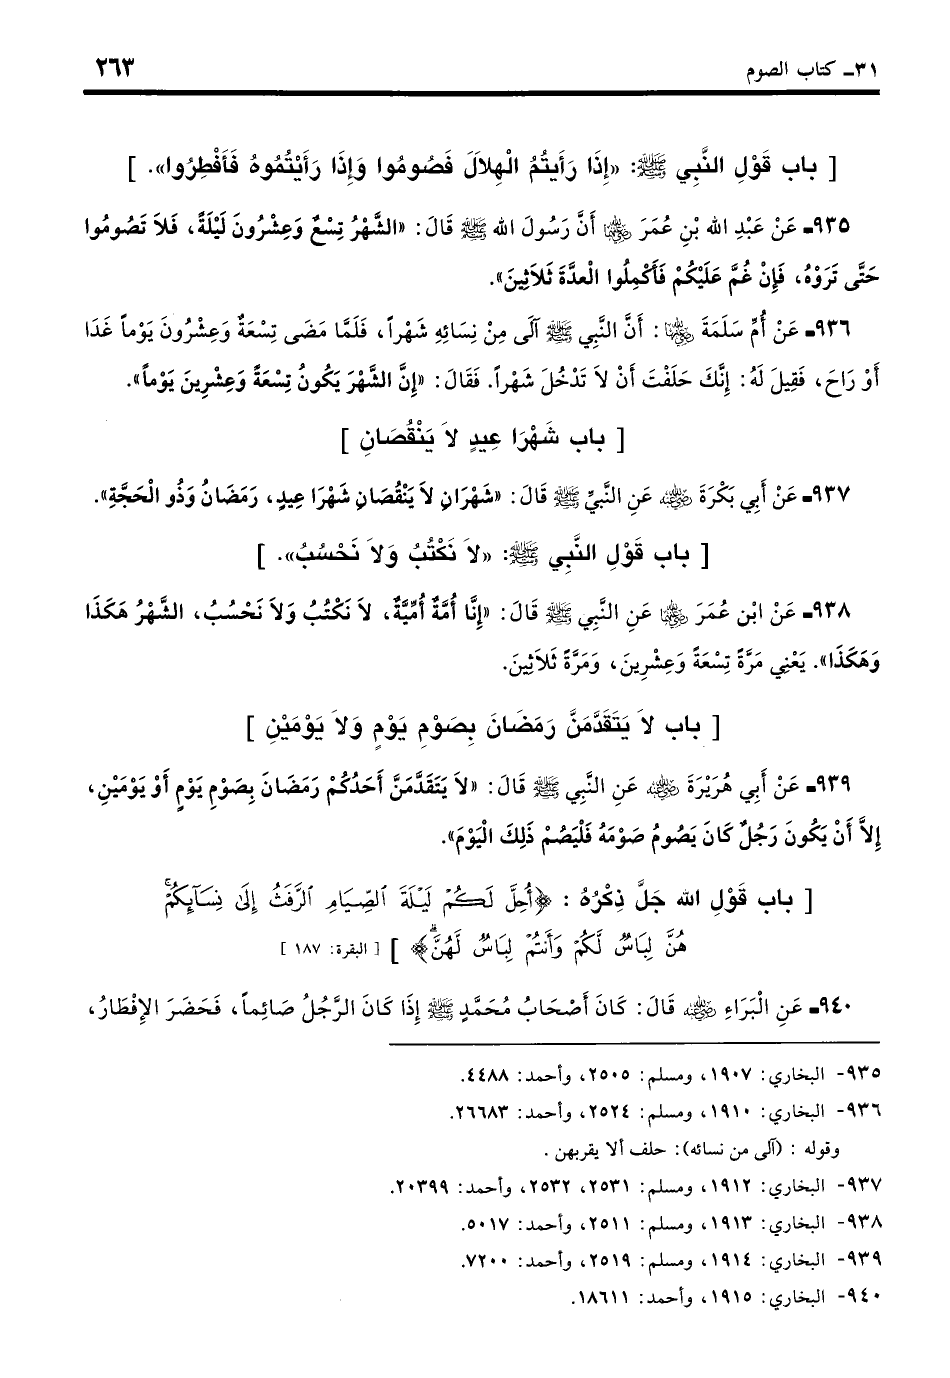 ٣١ـ كتاب الصوم ٢٦٣
[ باب قَوْلِ النَّبِي ﷺ: «إِذَا رَأَيتُمُ الْهِلاَلَ فَصُومُوا وَإِذَا رَأَيْتُمُوهُ فَأَفْطِرُوا». ]
٩٣٥ـ عَنْ عَبْدِ الله بْنِ عُمَرَ رضي الله عنهما أَنَّ رَسُولَ الله ﷺ قَالَ: «الشَّهْرُ تِسْعٌ وَعِشْرُونَ لَيْلَةً، فَلاَ تَصُومُوا
حَتَّى تَرَوْهُ، فَإِنْ غُمَّ عَلَيْكُمْ فَأَكْمِلُوا الْعدَّةَ ثَلاَثِينَ».
٩٣٦ـ عَنْ أُمِّ سَلَمَةَ رضي الله عنها: أَنَّ النَّبِي ﷺ آلَى مِنْ نِسَائِهِ شَهْراً، فَلَمَّا مَضَى تِسْعَةٌ وَعِشْرُونَ يَوْماً غَدَا
أَوْ رَاحَ، فَقِيلَ لَهُ: إِنَّكَ حَلَفْتَ أَنْ لاَ تَدْخُلَ شَهْراً. فَقَالَ: «إِنَّ الشَّهْرَ يَكُونُ تِسْعَةً وَعِشْرِينَ يَوْماً».
[ باب شَهْرَا عِيدٍ لاَ يَنْقُصَانِ ]
٩٣٧ـ عَنْ أَبِي بَكْرَةَ رضي الله عنه عَنِ النَّبِيِّ ﷺ قَالَ: «شَهْرَانِ لاَ يَنْقُصَانِ شَهْرَا عِيدٍ، رَمَضَانُ وَذُو الْحَجَّةِ».
[ باب قَوْلِ النَّبِي ﷺ: «لاَ نَكْتُبُ وَلاَ نَحْسُبُ». ]
٩٣٨ـ عَنْ ابْنِ عُمَرَ رضي الله عنهما عَنِ النَّبِي ﷺ قَالَ: «إِنَّا أُمَّةٌ أُمِّيَّةٌ، لاَ نَكْتُبُ وَلاَ نَحْسُبُ، الشَّهْرُ هَكَذَا
وَهَكَذَا». يَعْنِي مَرَّةً تِسْعَةً وَعِشْرِينَ، وَمَرَّةً ثَلاَثِينَ.
[ باب لاَ يَتَقَدَّمَنَّ رَمَضَانَ بِصَوْمِ يَوْمٍ وَلاَ يَوْمَيْنِ ]
٩٣٩ـ عَنْ أَبِي هُرَيْرَةَ رضي الله عنه عَنِ النَّبِي ﷺ قَالَ: «لاَ يَتَقَدَّمَنَّ أَحَدُكُمْ رَمَضَانَ بِصَوْمِ يَوْمٍ أَوْ يَوْمَيْنِ،
إِلاَّ أَنْ يَكُونَ رَجُلٌ كَانَ يَصُومُ صَوْمَهُ فَلْيَصُمْ ذَلِكَ الْيَوْمَ».
[ باب قَوْلِ الله جَلَّ ذِكْرُهُ : ﴿أُحِلَّ لَكُمْ لَيْلَةَ ٱلصِّيَامِ ٱلرَّفَثُ إِلَىٰ نِسَآئِكُمْۚ
هُنَّ لِبَاسٌ لَّكُمْ وَأَنتُمْ لِبَاسٌ لَّهُنَّۗ﴾ ] [ البقرة: ١٨٧ ]
٩٤٠ـ عَنِ الْبَرَاءِ رضي الله عنه قَالَ: كَانَ أَصْحَابُ مُحَمَّدٍ ﷺ إِذَا كَانَ الرَّجُلُ صَائِماً، فَحَضَرَ الإِفْطَارُ،
٩٣٥- البخاري: ١٩٠٧، ومسلم: ٢٥٠٥، وأحمد: ٤٤٨٨.
٩٣٦- البخاري: ١٩١٠، ومسلم: ٢٥٢٤، وأحمد: ٢٦٦٨٣.
وقوله : (آلى من نسائه): حلف ألا يقربهن .
٩٣٧- البخاري: ١٩١٢، ومسلم: ٢٥٣١، ٢٥٣٢، وأحمد: ٢٠٣٩٩.
٩٣٨- البخاري: ١٩١٣، ومسلم: ٢٥١١، وأحمد: ٥٠١٧.
٩٣٩- البخاري: ١٩١٤، ومسلم: ٢٥١٩، وأحمد: ٧٢٠٠.
٩٤٠- البخاري: ١٩١٥، وأحمد: ١٨٦١١.